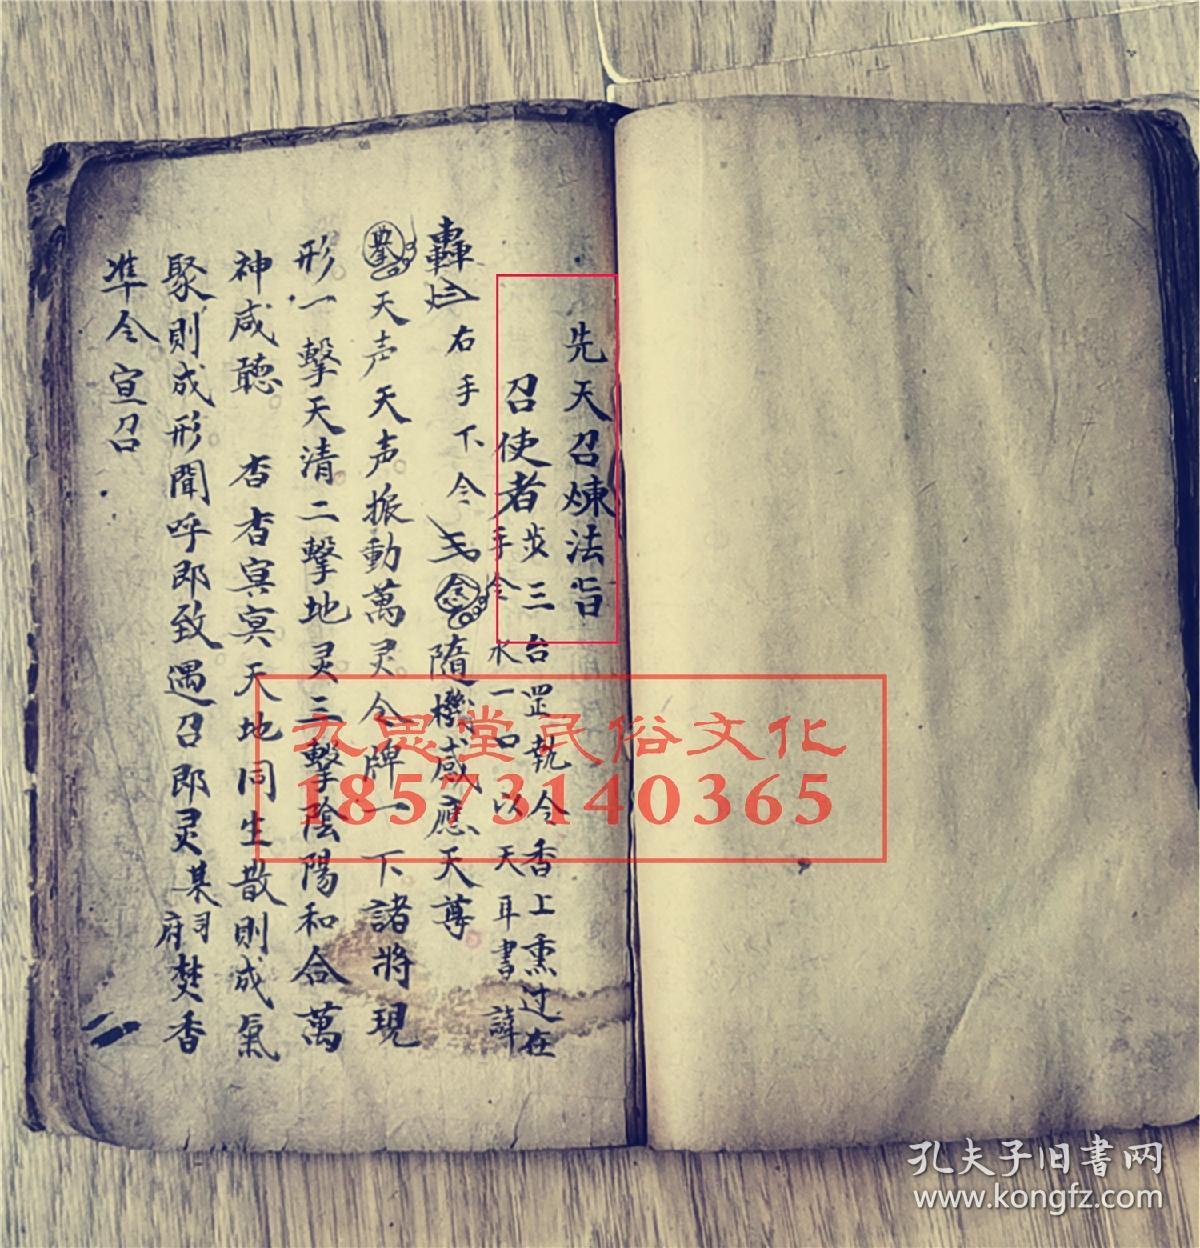 先天召煉法旨
召使者 步三台罡執令香上熏过在
手令水一口以天耳書諱
轟 右手下令 隨機感應天尊
天声天声振動萬灵令牌一下諸將現
形一擊天清二擊地灵三擊陰陽和合萬
神咸聽 杳杳冥冥天地同生散則成氣
聚則成形聞呼即致遇召即灵某司府焚香
準令宣召
九思堂民俗文化
18573140365
孔夫子旧書网
www.kongfz.com